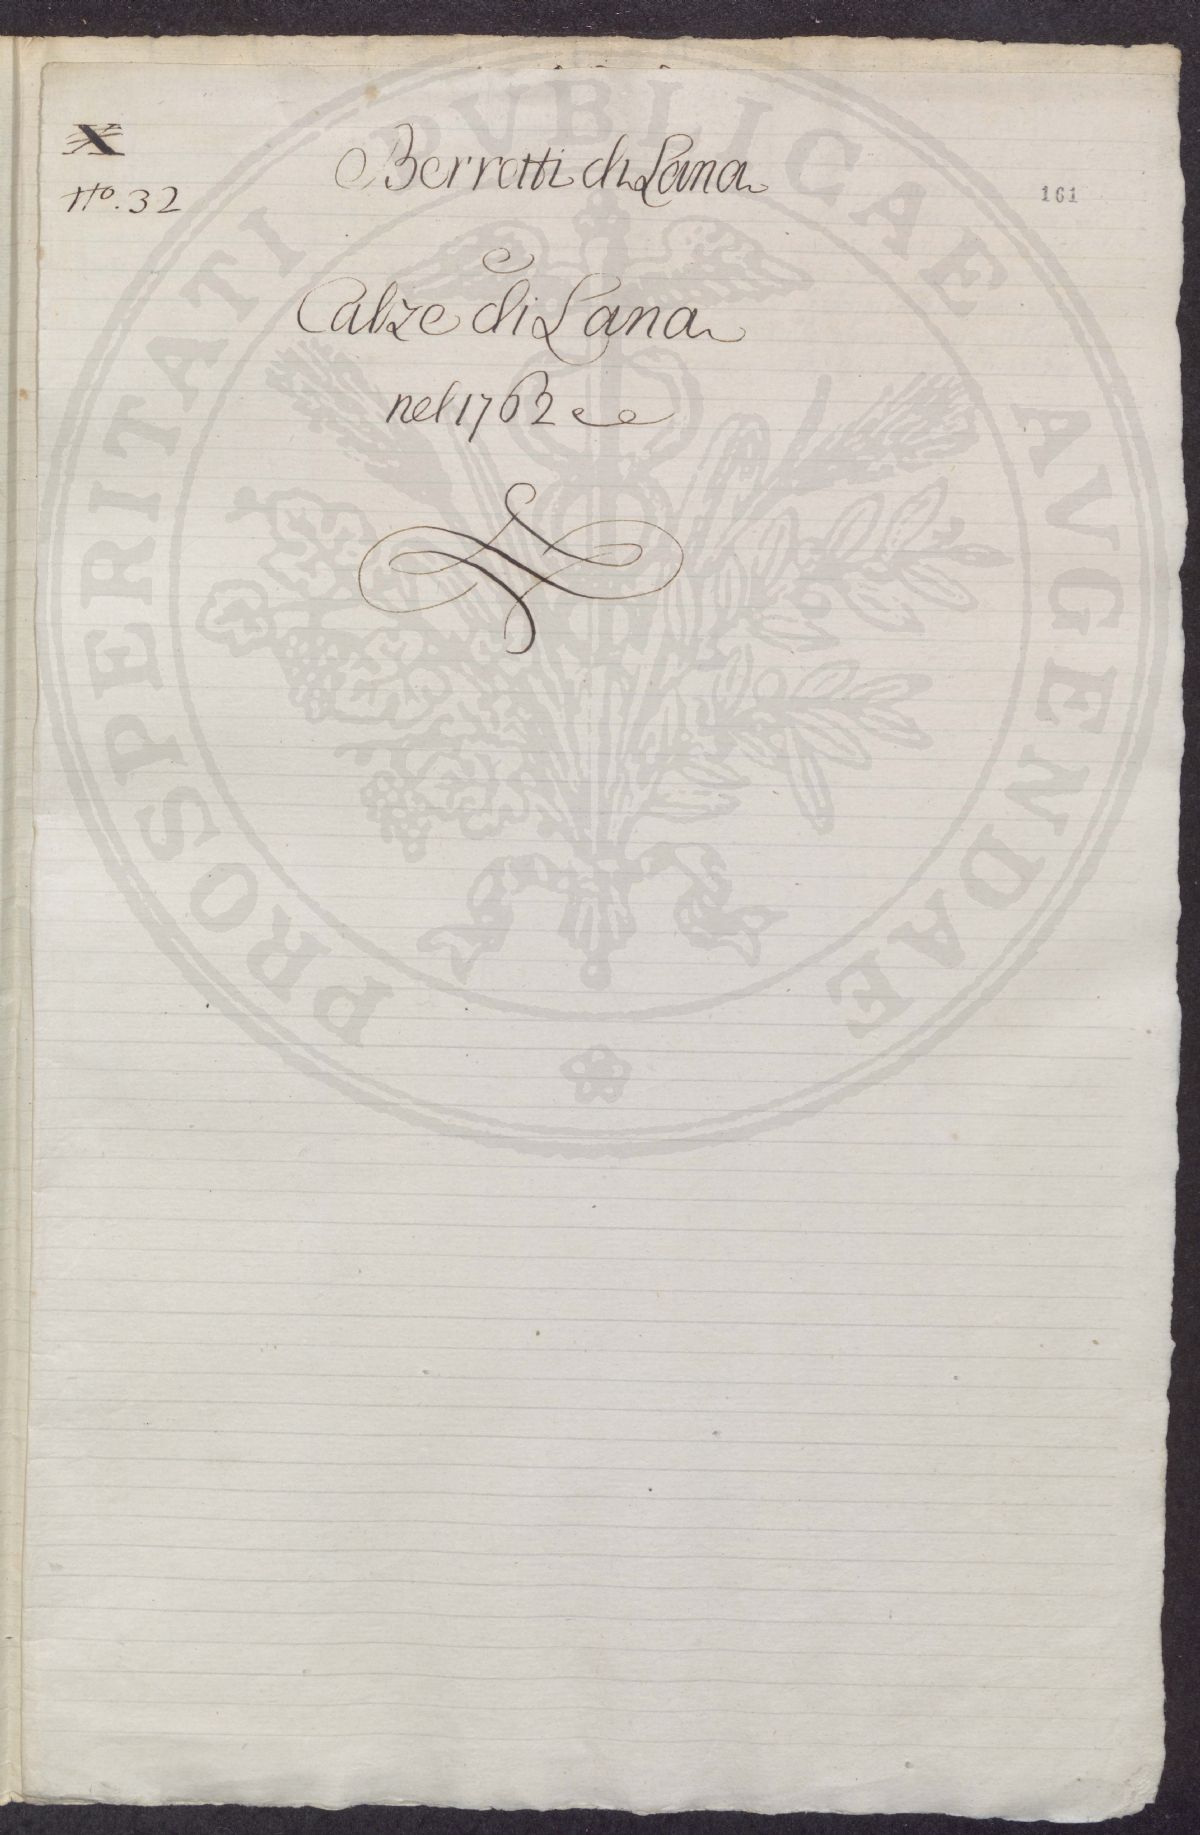 X
No. 32
Berretti di Lana
161
e
Calze di Lana
nel 1762
PROSPERITATI PVBLICAE AVGENDAE